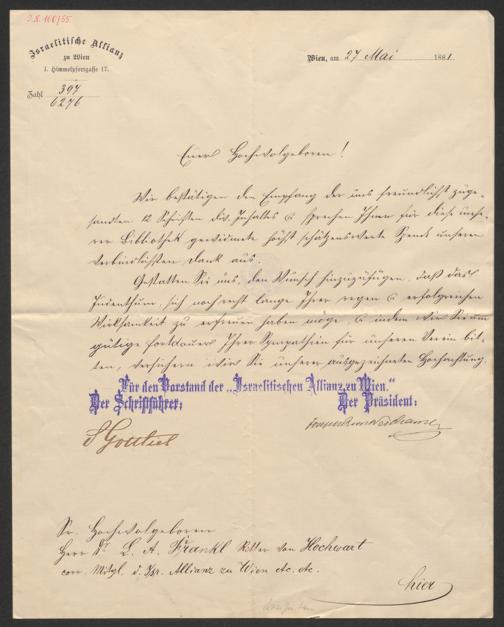 I.N. 160755
Israelitische Allianz
zu Wien
I. Himmelpfortgasse 17.
Zahl 397
6276
Wien, am 27 Mai 1881.
Euer Hochwolgeboren!
Wir bestätigen den Empfang der uns freundlichst zuge-
sandten 12 Schriften div. Inhaltes & sprechen Ihnen für diese unse-
rer Bibliothek gewidmete höchst schätzenswerte Spende unseren
verbindlichsten Dank aus.
Gestatten Sie uns, den Wunsch hinzuzufügen, daß das
Judenthum sich noch recht lange Ihrer regen & erfolgreichen
Wirksamkeit zu erfreuen haben möge & indem wir Sie um
gütige Fortdauer Ihrer Sympathien für unseren Verein bit-
ten, versichern wir Sie unserer ausgezeichneten Hochachtung.
Für den Vorstand der „Israelitischen Allianz zu Wien."
Der Schriftführer: Der Präsident:
S Gottlieb
Sr. Hochwolgeboren
Herr Dr. L. A. Frankl Ritter von Hochwart
corr. Mitgl. d. Isr. Allianz zu Wien etc. etc.
hier